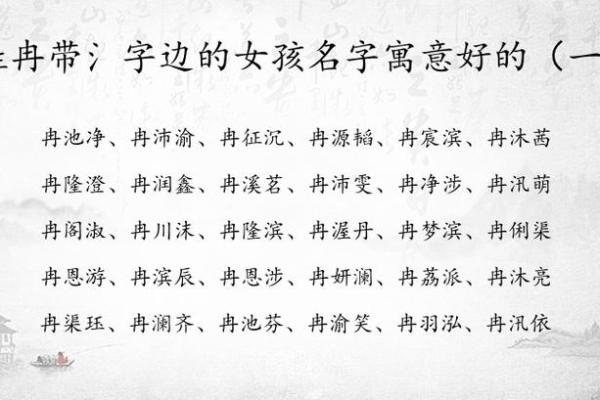 冉带氵字边的女孩名字寓意好的（一
冉池净、冉沛渝、冉征沉、冉源韬、冉宸滨、冉沐茜
冉隆澄、冉润鑫、冉溪茗、冉沛雯、冉净涉、冉汛萌
冉阁淑、冉川沫、冉隆滨、冉渥丹、冉梦滨、冉俐渠
冉恩游、冉滨辰、冉恩涉、冉妍澜、冉荔派、冉沐亮
冉渠珏、冉澜齐、冉池芬、冉渝笑、冉羽泓、冉汛依